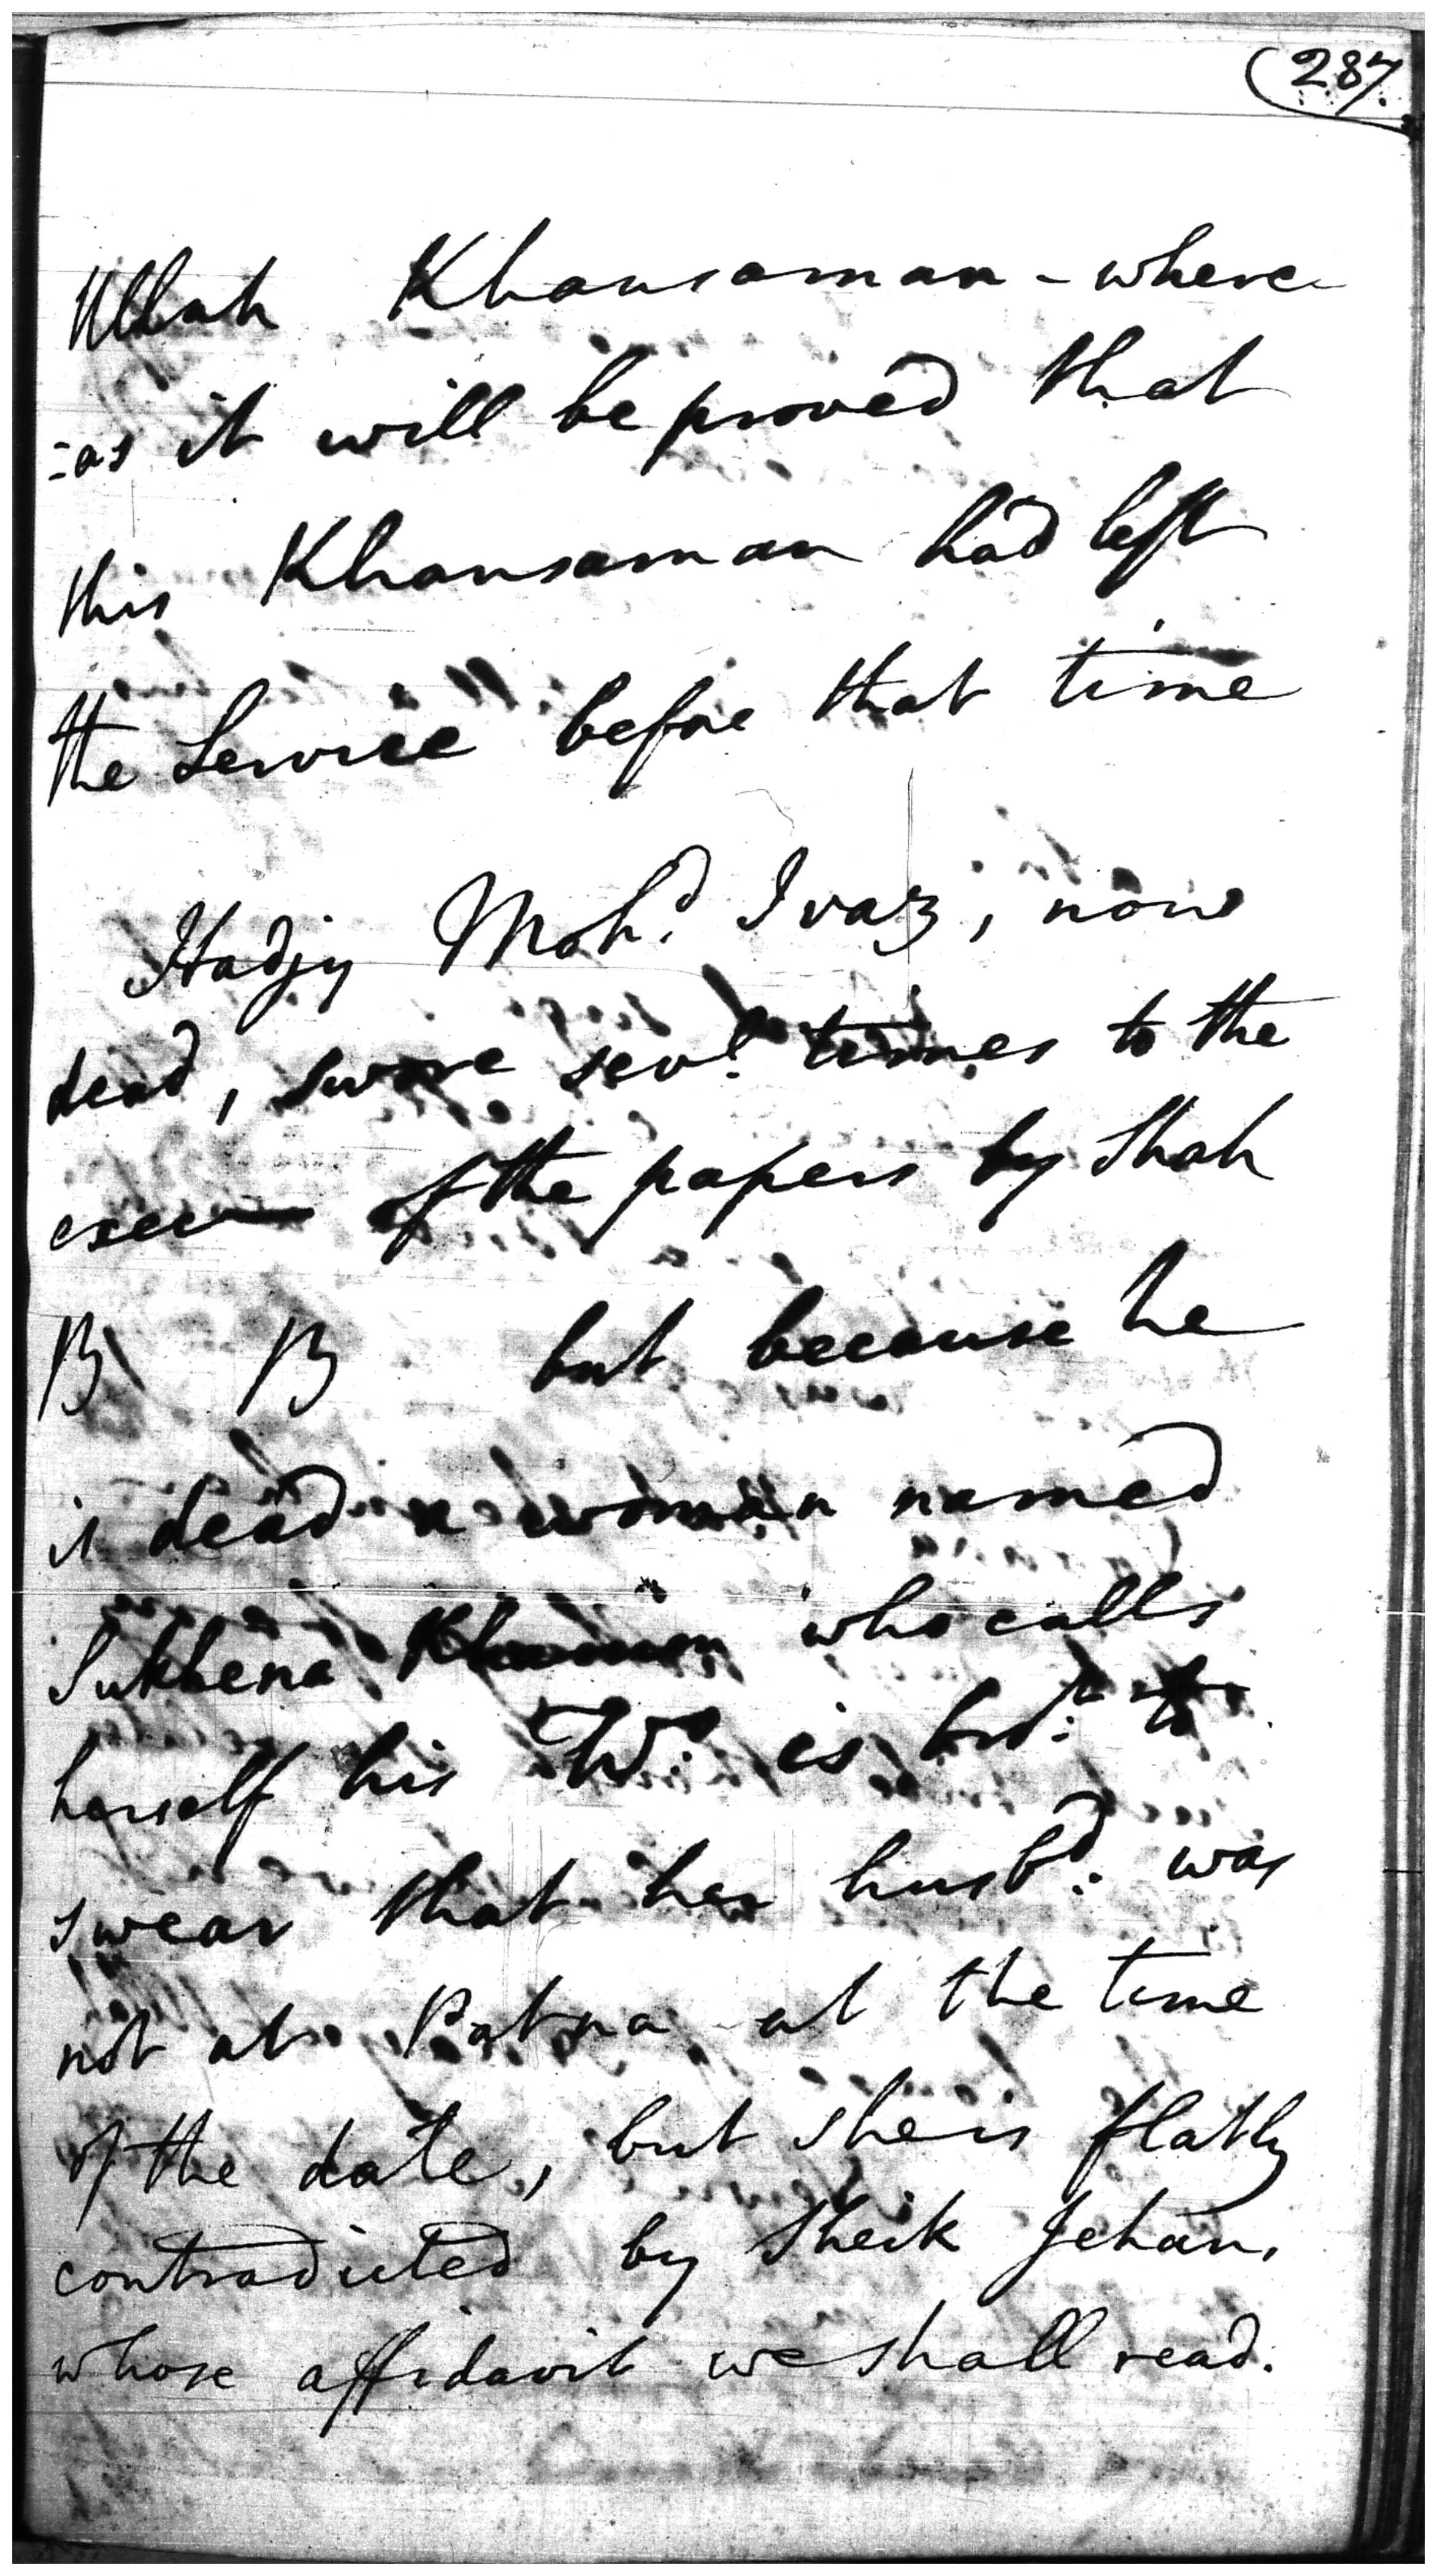 (287)
Ullah Khansaman - where
=as it will be proved that
this Khansaman had left
the Service before that time
Hadjy Moh.d Ivaz, now
dead, swore sev.l times to the
of the papers by Shah
B B but because he
is dead a woman named
who calls
herself his W. is bro.t to
swear that her husb.d was
not at Patna at the time
of the date, but she is flatly
contradicted by Sheik Jehan,
whose affidavit we shall read.